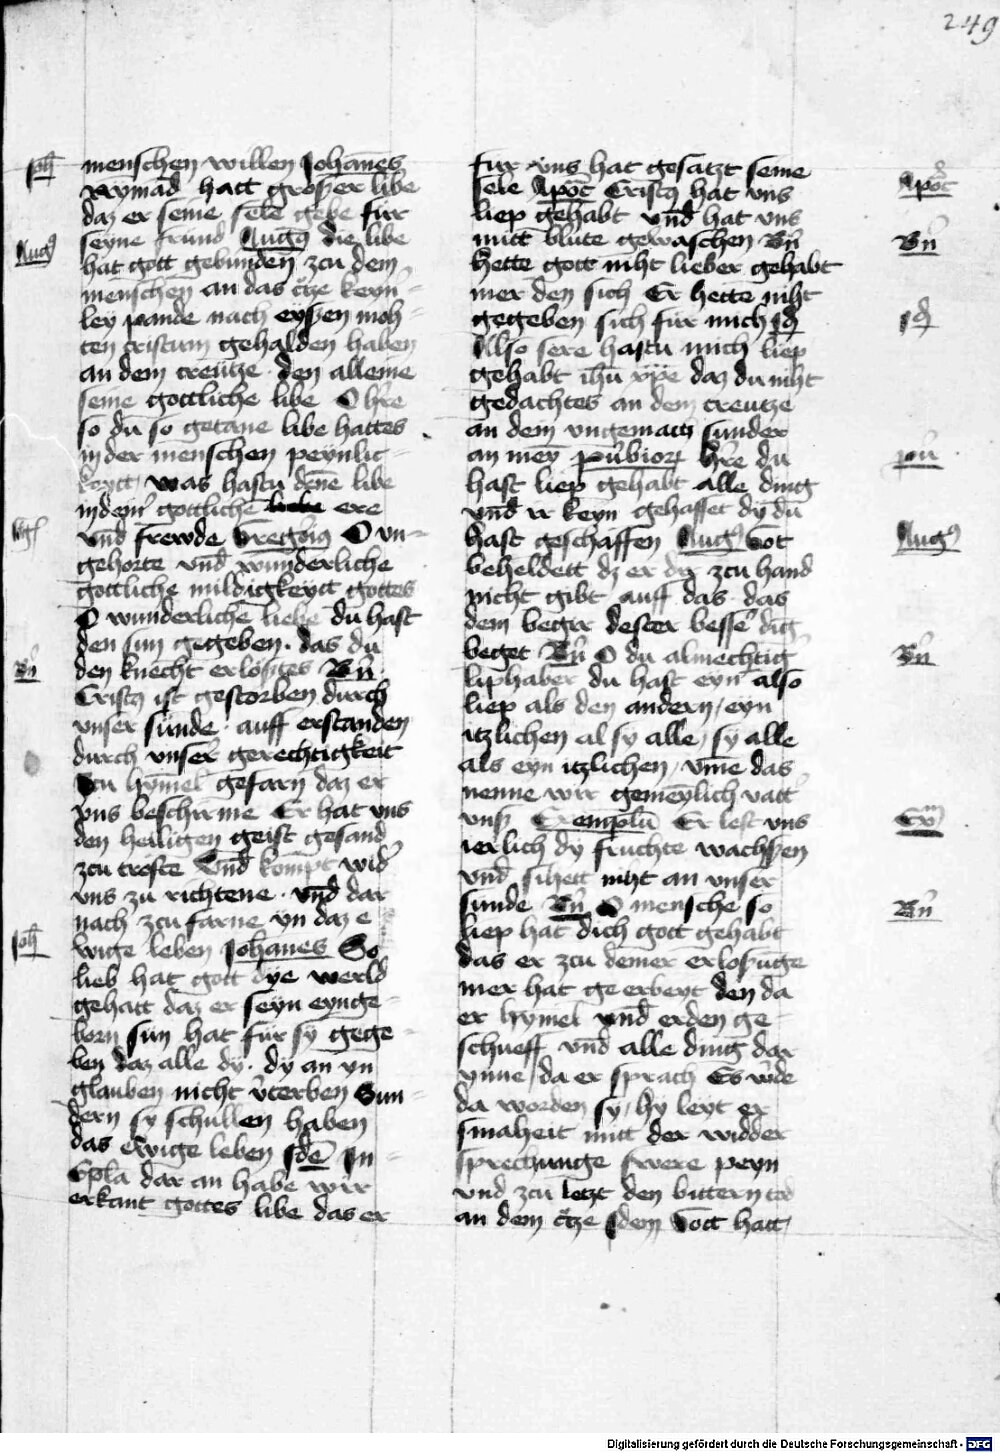 249
Joh̄
menschen willen Johānes
Nymād hatt groszer libe
daz er seine sele gebe für
seyne frund Augꝰ die libe
Augꝰ
hat gott gebunden zcu dem
menschen an das c̄tze keyn
ley pande nach eyszen moh
ten cristum gehalden haben
an dem creutze · den alleine
seine gottliche libe O h̄re
so du so getane libe hattes
in der menschen peynlic
keytt was hastu dēne libe
in deiner gottlichē libe ere
und frewde Gregoriꝰ O un
Greg
gehorte und̄ wunderliche
gottliche mildigkeytt gottes
O wunderliche liebe du hast
den sun gegeben · das du
den knecht erlosztes Bn̄
Bn̄
Cristꝰ ist gestorben durch
unser sünde · auff erstanden
durch unser gerechtigkeit
zcu hymel gefarn daz er
uns beschirme Er hat uns
den heiligen geist gesand
zcu troste Und̄ kompt wid̄
uns zu richtene · und̄ dar
nach zcu farne yn daz e
wige leben Johānes So
Joh̄
lieb hat gott dye werld
gehatt daz er seyn eynge
born sun hat für sy gege
ben daz alle dy · dy an yn
glauben nicht v̄terben Sun
dern sy schullen haben
das ewige leben Jdē In
Ep̄la dar an habe wir
erkant gottes libe das er
fur uns hat gesatzt seine
sele Apoc̄ Cristꝰ hat uns
Apoc̄
liep gehabt und̄ hat uns
mitt blute gewaschen Bn̄
Bn̄
hette gott niht lieber gehabt
mer den sich Er hette niht
gegeben sich für mich Jd̄
Jd̄
Also sere hastu mich liep
gehabt ihū xp̄e daz du niht
gedachtes an dem creutze
an dem ungemach sunder
an mey h̄re du
hast liep gehabt alle ding
und̄ keyn gehasset dy du
hast geschaffen Augꝰ Got
Augꝰ
beheldett dz er dir zcu hand
nicht gibt auff das · das
dem beger dester besse͛ dig
beget Bn̄ O du almechtig͛
Bn̄
liphaber du hast eyn͛ also
liep als den andern / eyn
itzlichen al sy alle / sy alle
als eyn itzlichen / ūme das
nenne wir gemeylich vatt͛
unsz Exemplū Er lest uns
Exm
ierlich dy fruchte wachszen
und̄ sihett niht an unser
sunde Bn̄ O mensche so
Bn̄
liep hat dich gott gehabt
das er zcu demer erloszūge
mer hat ge erbeyt den da
er hymel und̄ erden ge
schueff und̄ alle ding dar
ynne / da er sprach Es w̄de
da worden sy / hy leyt er
smaheit mitt der widder
sprechunge swere peyn
und zcu letzt den bittern tod
an dem c̄tze Jdem Gott hatt
Digitalisierung gefördert durch die Deutsche Forschungsgemeinschaft - DFG